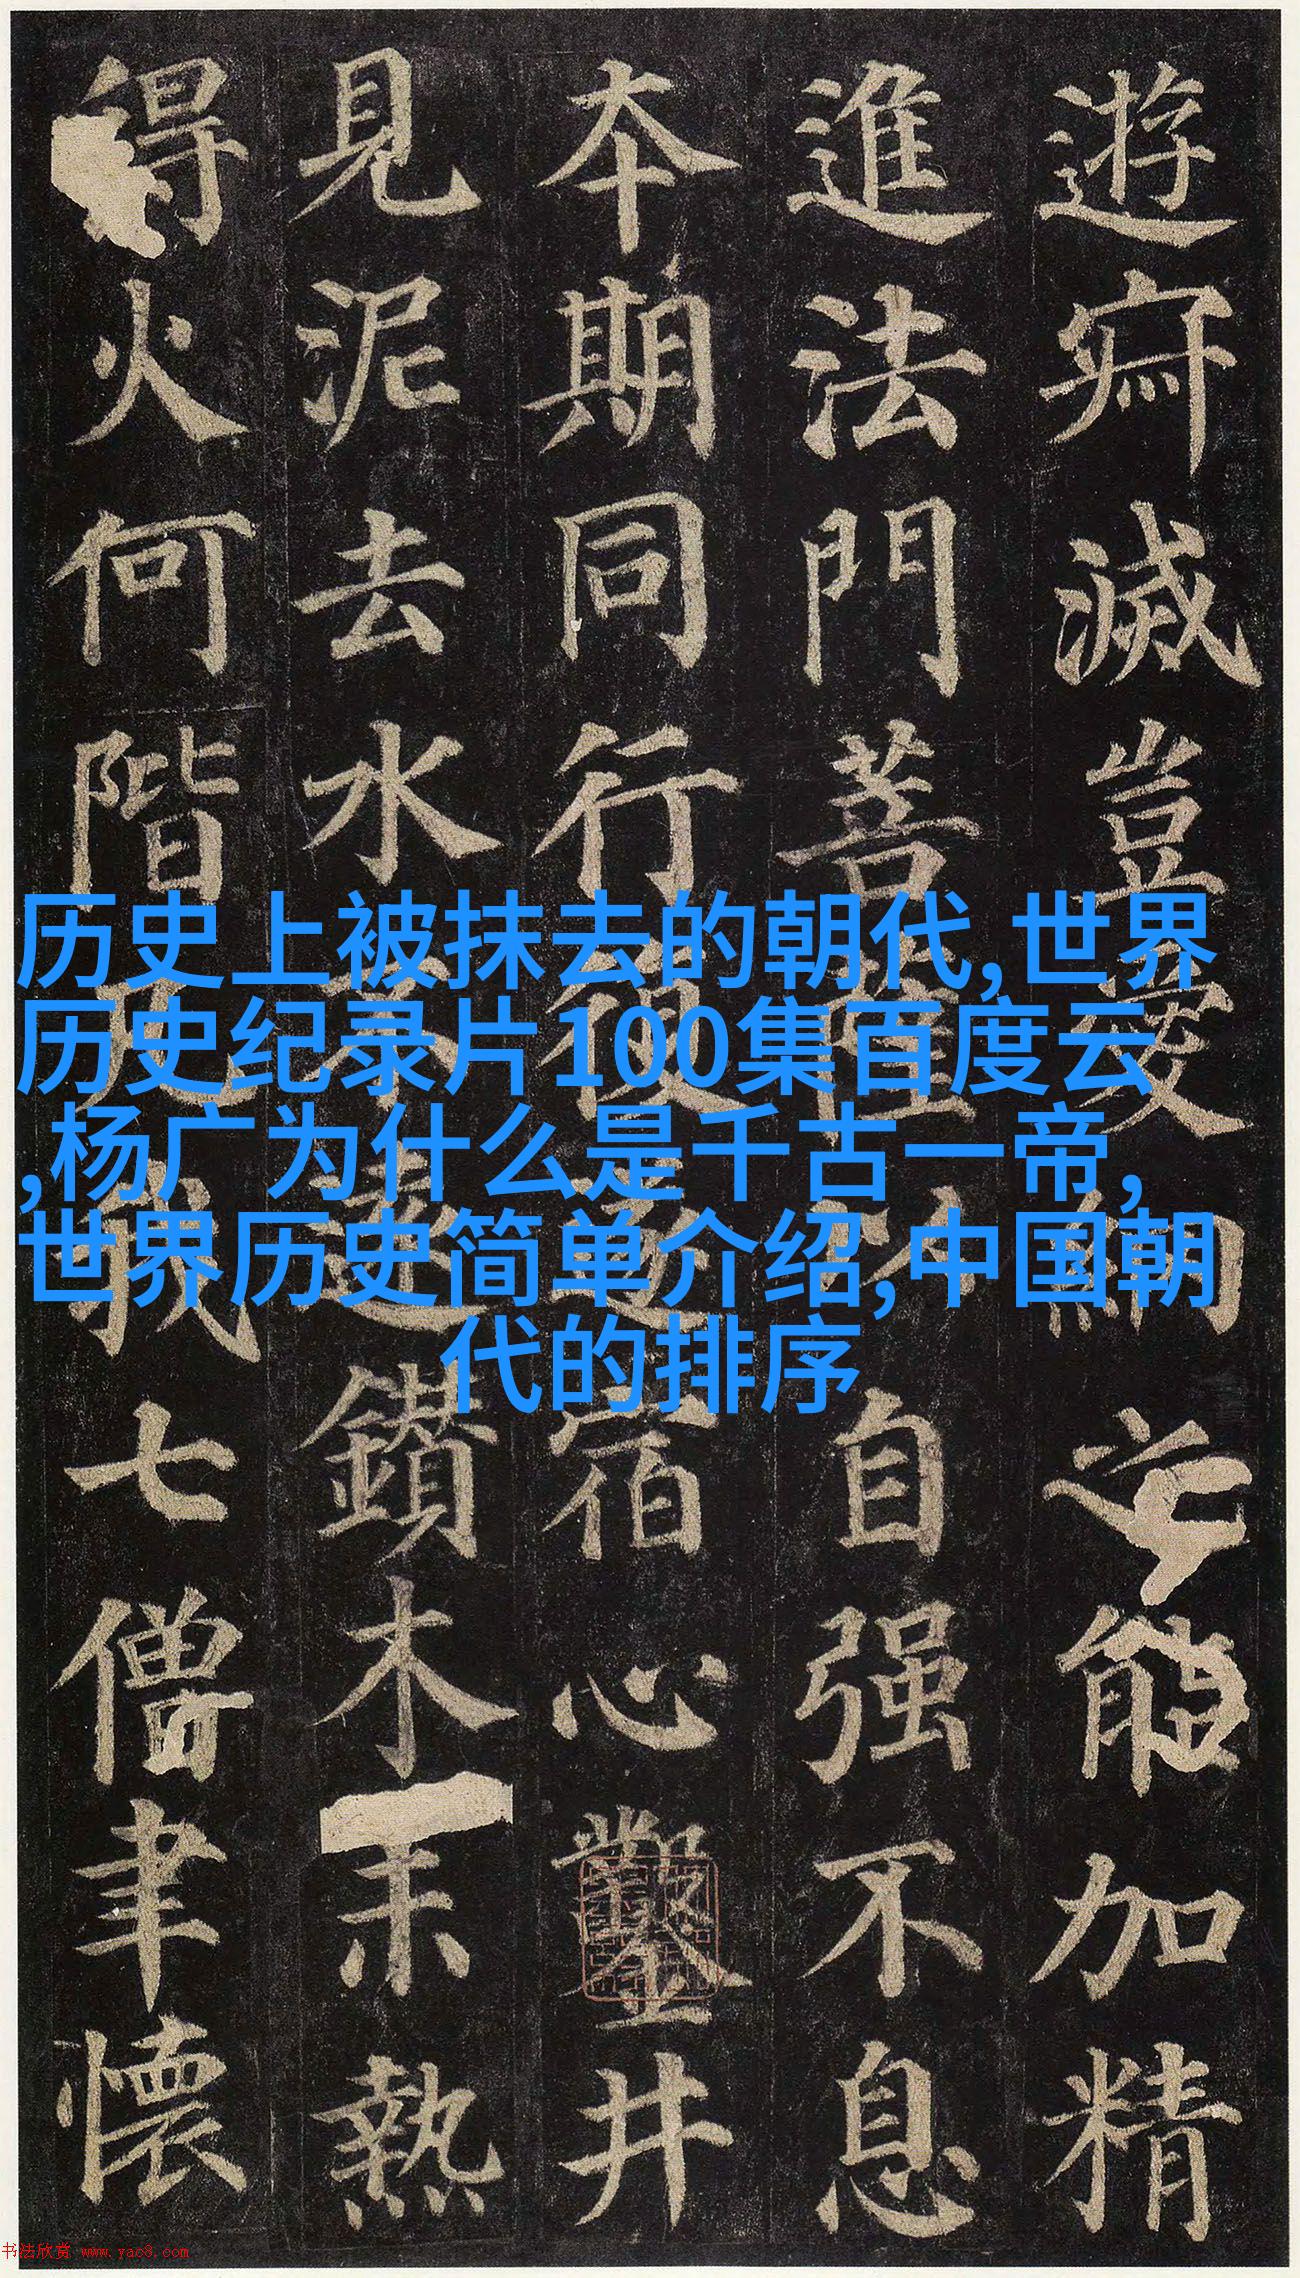 遊寂滅豈愛網之能加精
進法門菩薩以自强不息
本期同行復遂宿心鑿井
見泥去水不遠鑽木未熱
得火何階凡我七僧聿懷
历史上被抹去的朝代,世界
历史纪录片100集百度云
,杨广为什么是千古一帝,
世界历史简单介绍,中国朝
代的排序
书法欣赏 www.yac8.com